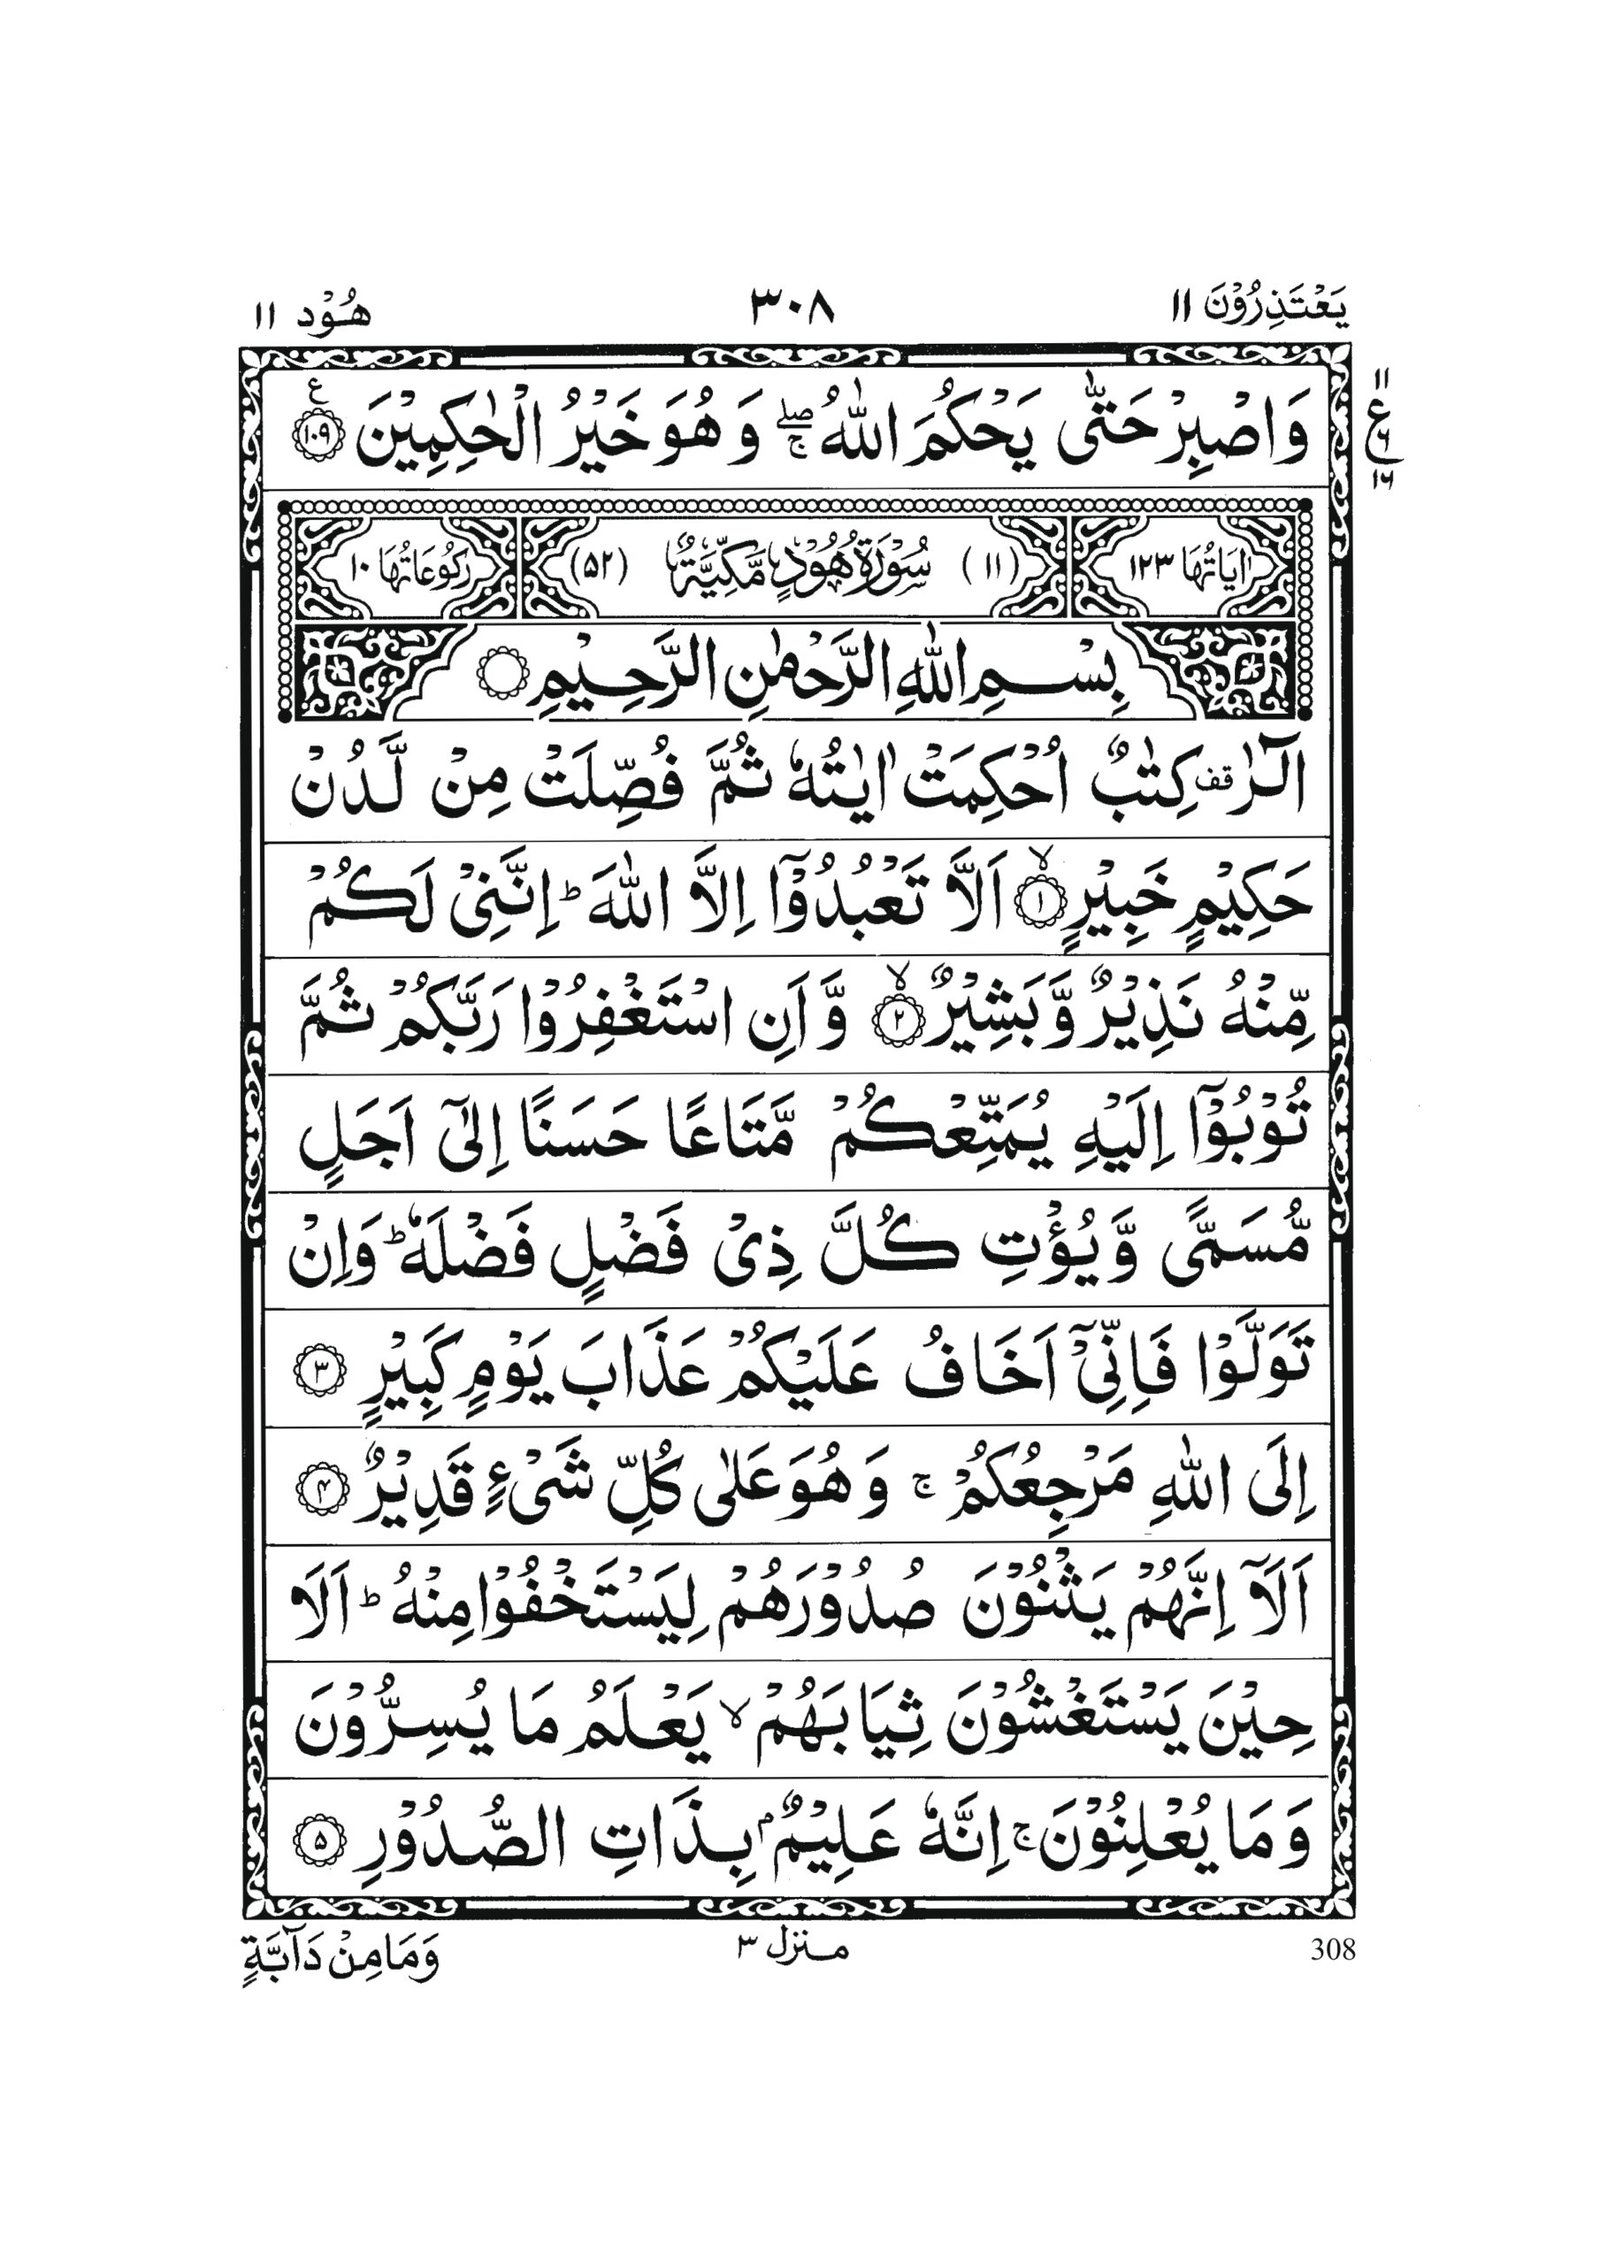 يَعْتَذِرُوْنَ ١١
٣٠٨
هُوْد ١١
وَاصْبِرْ حَتّٰى يَحْكُمَ اللّٰهُ ۖۚ وَ هُوَ خَيْرُ الْحٰكِمِيْنَ ﴿١٠٩﴾ ع
١١ ع ١٦
اٰيَاتُهَا ١٢٣
(١١) سُوْرَةُ هُوْدٍ مَّكِّيَّةٌ (٥٢)
رُكُوْعَاتُهَا ١٠
بِسْمِ اللّٰهِ الرَّحْمٰنِ الرَّحِيْمِ
الٓرٰ قف كِتٰبٌ اُحْكِمَتْ اٰيٰتُهٗ ثُمَّ فُصِّلَتْ مِنْ لَّدُنْ
حَكِيْمٍ خَبِيْرٍ ﴿١﴾ ۙ اَلَّا تَعْبُدُوْٓا اِلَّا اللّٰهَ ؕ اِنَّنِيْ لَكُمْ
مِّنْهُ نَذِيْرٌ وَّ بَشِيْرٌ ﴿٢﴾ ۙ وَّ اَنِ اسْتَغْفِرُوْا رَبَّكُمْ ثُمَّ
تُوْبُوْٓا اِلَيْهِ يُمَتِّعْكُمْ مَّتَاعًا حَسَنًا اِلٰٓى اَجَلٍ
مُّسَمًّى وَّ يُؤْتِ كُلَّ ذِيْ فَضْلٍ فَضْلَهٗ ؕ وَاِنْ
تَوَلَّوْا فَاِنِّيْٓ اَخَافُ عَلَيْكُمْ عَذَابَ يَوْمٍ كَبِيْرٍ ﴿٣﴾
اِلَى اللّٰهِ مَرْجِعُكُمْ ۚ وَ هُوَ عَلٰى كُلِّ شَيْءٍ قَدِيْرٌ ﴿٤﴾
اَلَآ اِنَّهُمْ يَثْنُوْنَ صُدُوْرَهُمْ لِيَسْتَخْفُوْا مِنْهُ ؕ اَلَا
حِيْنَ يَسْتَغْشُوْنَ ثِيَابَهُمْ ۙ يَعْلَمُ مَا يُسِرُّوْنَ
وَ مَا يُعْلِنُوْنَ ۚ اِنَّهٗ عَلِيْمٌۢ بِذَاتِ الصُّدُوْرِ ﴿٥﴾
وَمَا مِنْ دَآبَّةٍ
منزل ٣
308